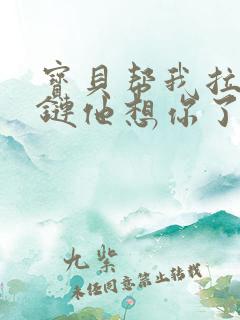 寳貝帮我拉
鏈他想你了
九紫
未经同意禁止转载